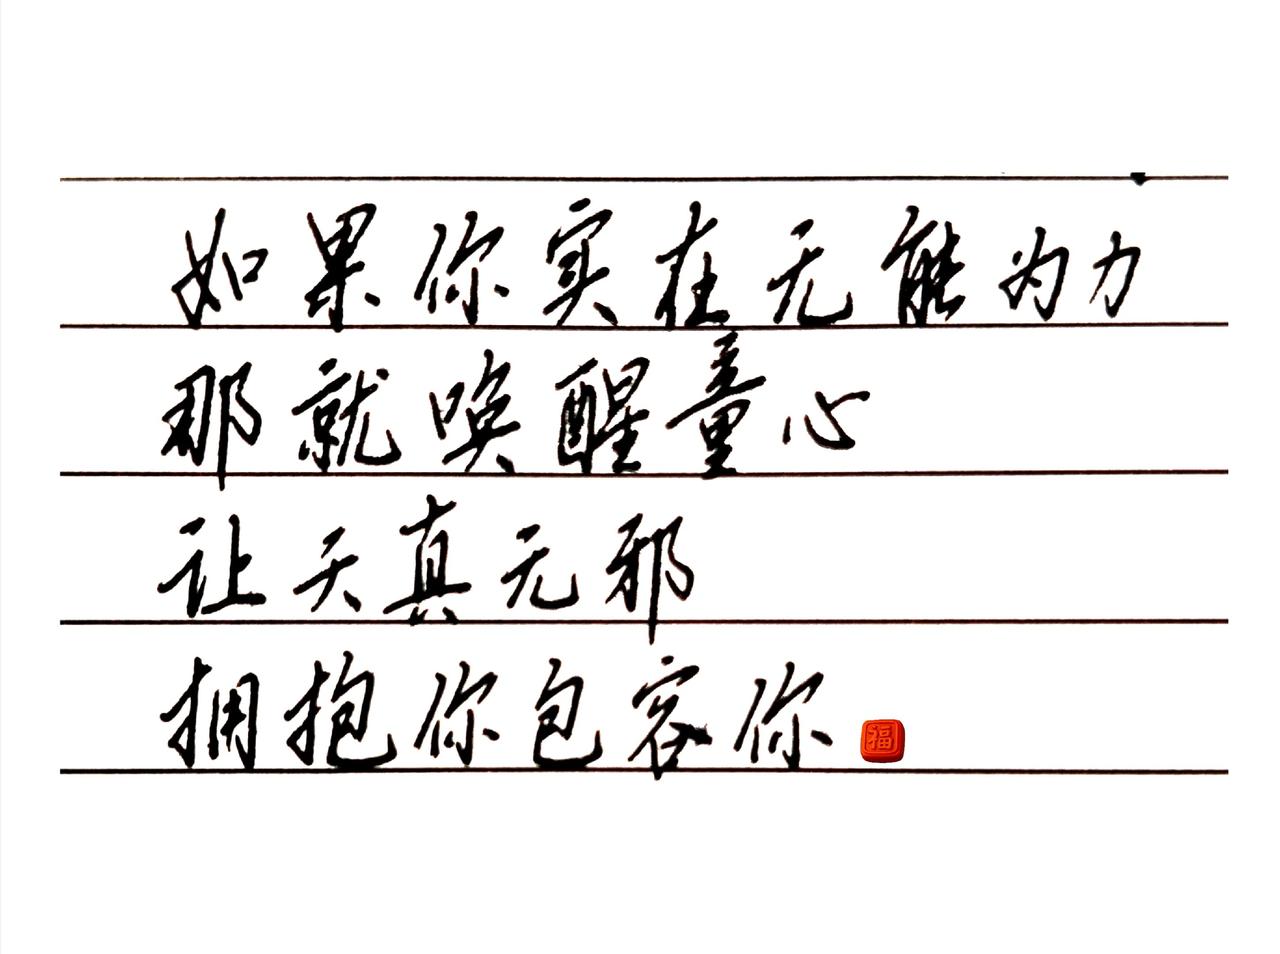 如果你实在无能为力
那就唤醒童心
让天真无邪
拥抱你包容你
福